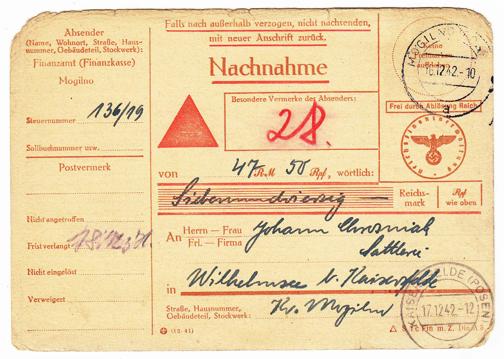 Absender
(Name, Wohnort, Straße, Haus-
nummer, Gebäudeteil, Stockwerk):
Finanzamt (Finanzkasse)
Mogilno
Steuernummer 136/19
Sollbuchnummer usw.
Postvermerk
Nicht angetroffen
Frist verlangt
Nicht eingelöst
Verweigert
Falls nach außerhalb verzogen, nicht nachsenden,
mit neuer Anschrift zurück.
Nachnahme
Besondere Vermerke des Absenders:
28.
von 47 RM 50 Rpf, wörtlich:
Siebenundvierzig —
Reichs-
mark
Rpf
wie oben
An Herrn – Frau
Frl. – Firma
Johann
Sattlerei
in Wilhelmsee b. Kaiserfelde
Straße, Hausnummer,
Gebäudeteil, Stockwerk:
Kr. Mogilno
MOGILNO
16.12.42.-10
a
Frei durch Ablösung Reich
Reichsfinanzverwaltung
KAISERSFELDE (POSEN)
17.12.42.-12
(12. 41)